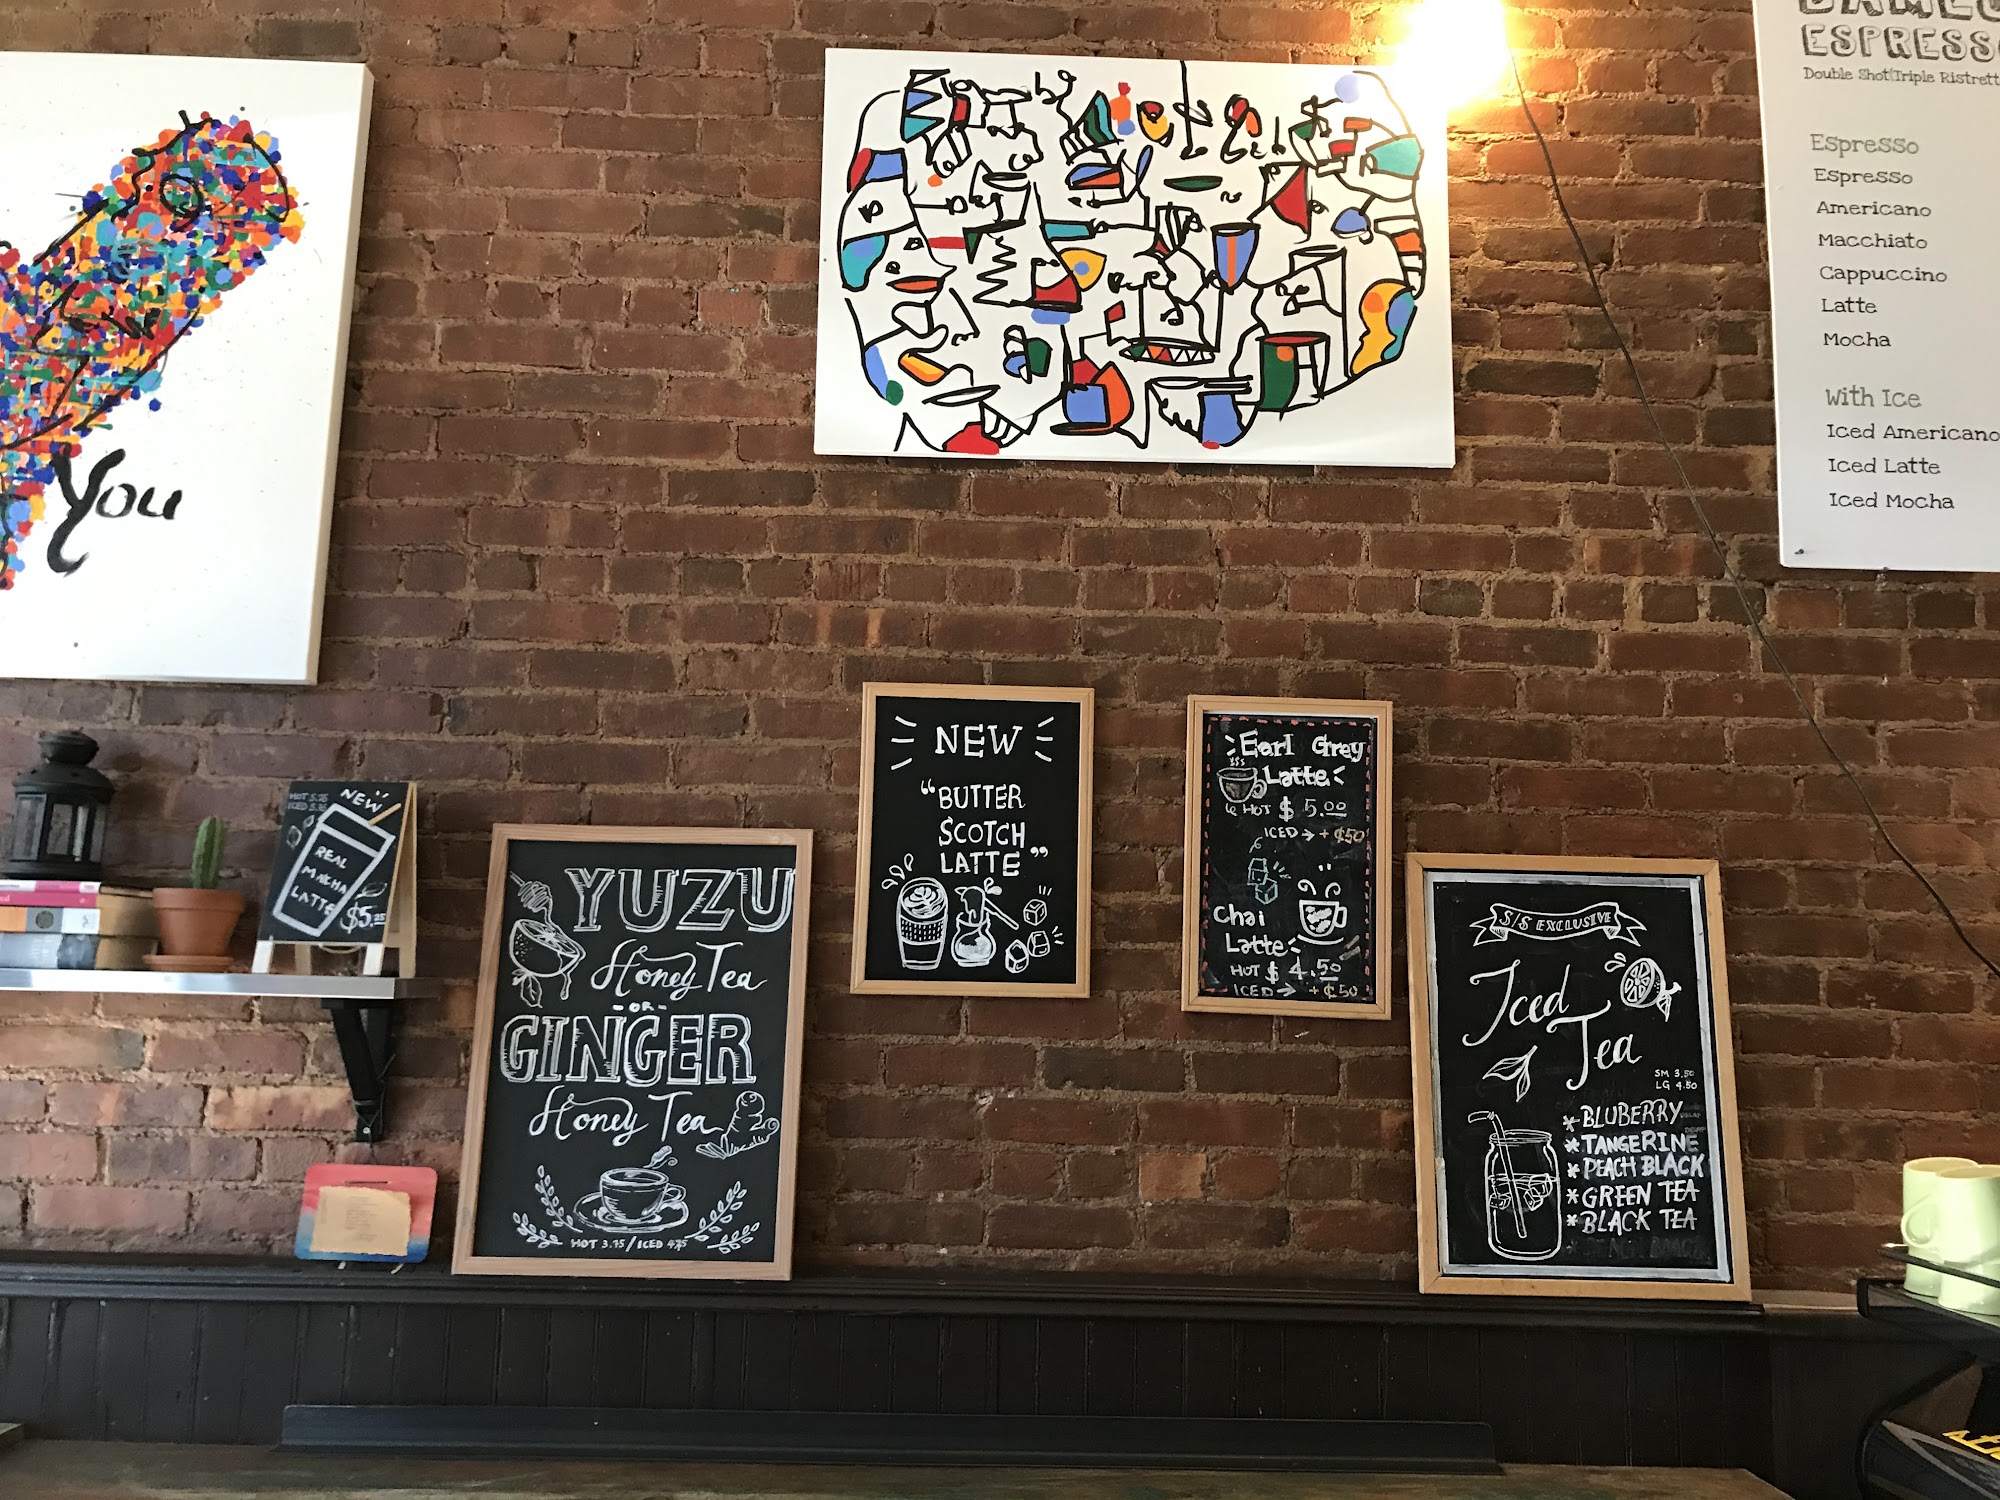 You
ESPRESSO
Double Shot/Triple Ristrett
Espresso
Espresso
Americano
Macchiato
Cappuccino
Latte
Mocha
With Ice
Iced Americano
Iced Latte
Iced Mocha
NEW
REAL
MACHA
LATTE
$5.25
YUZU
Honey Tea
-OR-
GINGER
Honey Tea
HOT 3.75/ICED 4.75
NEW
"BUTTER
SCOTCH
LATTE"
Earl Grey
Latte
HOT $ 5.00
ICED → + ¢50
Chai
Latte
HOT $ 4.50
ICED → + ¢50
S/S EXCLUSIVE
Iced
Tea
SM 3.50
LG 4.50
* BLUBERRY DECAF
* TANGERINE DECAF
* PEACH BLACK
* GREEN TEA
* BLACK TEA